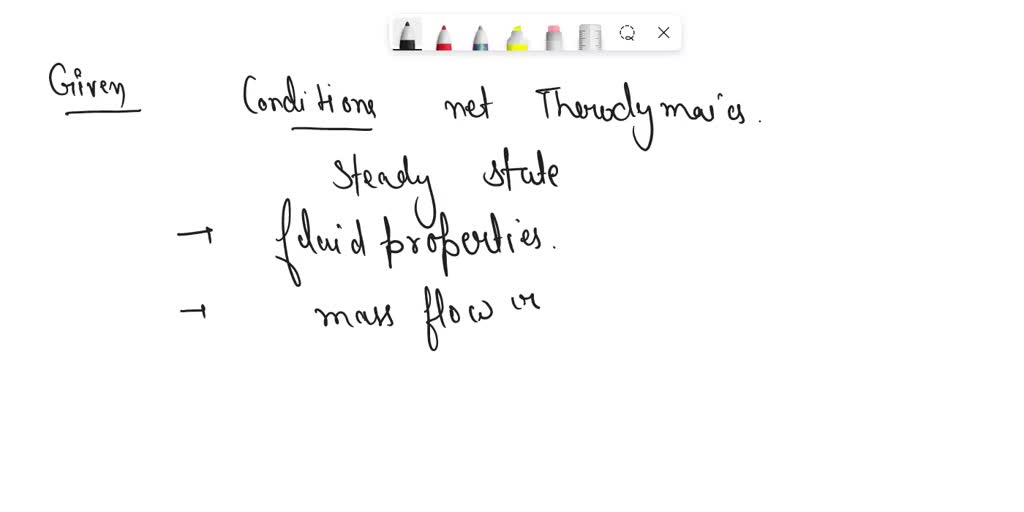 Given Conditions net Therodymaics.
steady state
→ fluid properties.
→ mass flow